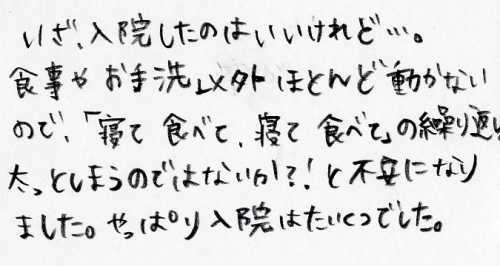 いざ、入院したのはいいけれど…。
食事や お手洗い以外 ほとんど 動かない
ので、「寝て 食べて、寝て 食べて」の繰り返し
太っとしまうのではないか?!と不安になり
ました。やっぱり入院はたいくつでした。